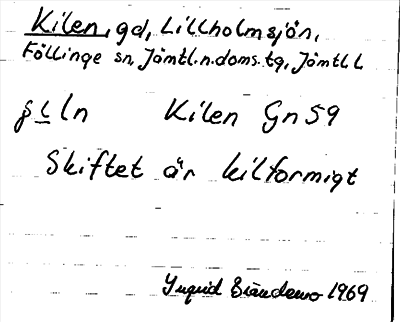 Kilen, gd, Lillholmsjön,
Föllinge sn, Jämtl.n.doms.tg, Jämtl. L
Kilen Gn 59
Skiftet är kilformigt
Ingrid 1969